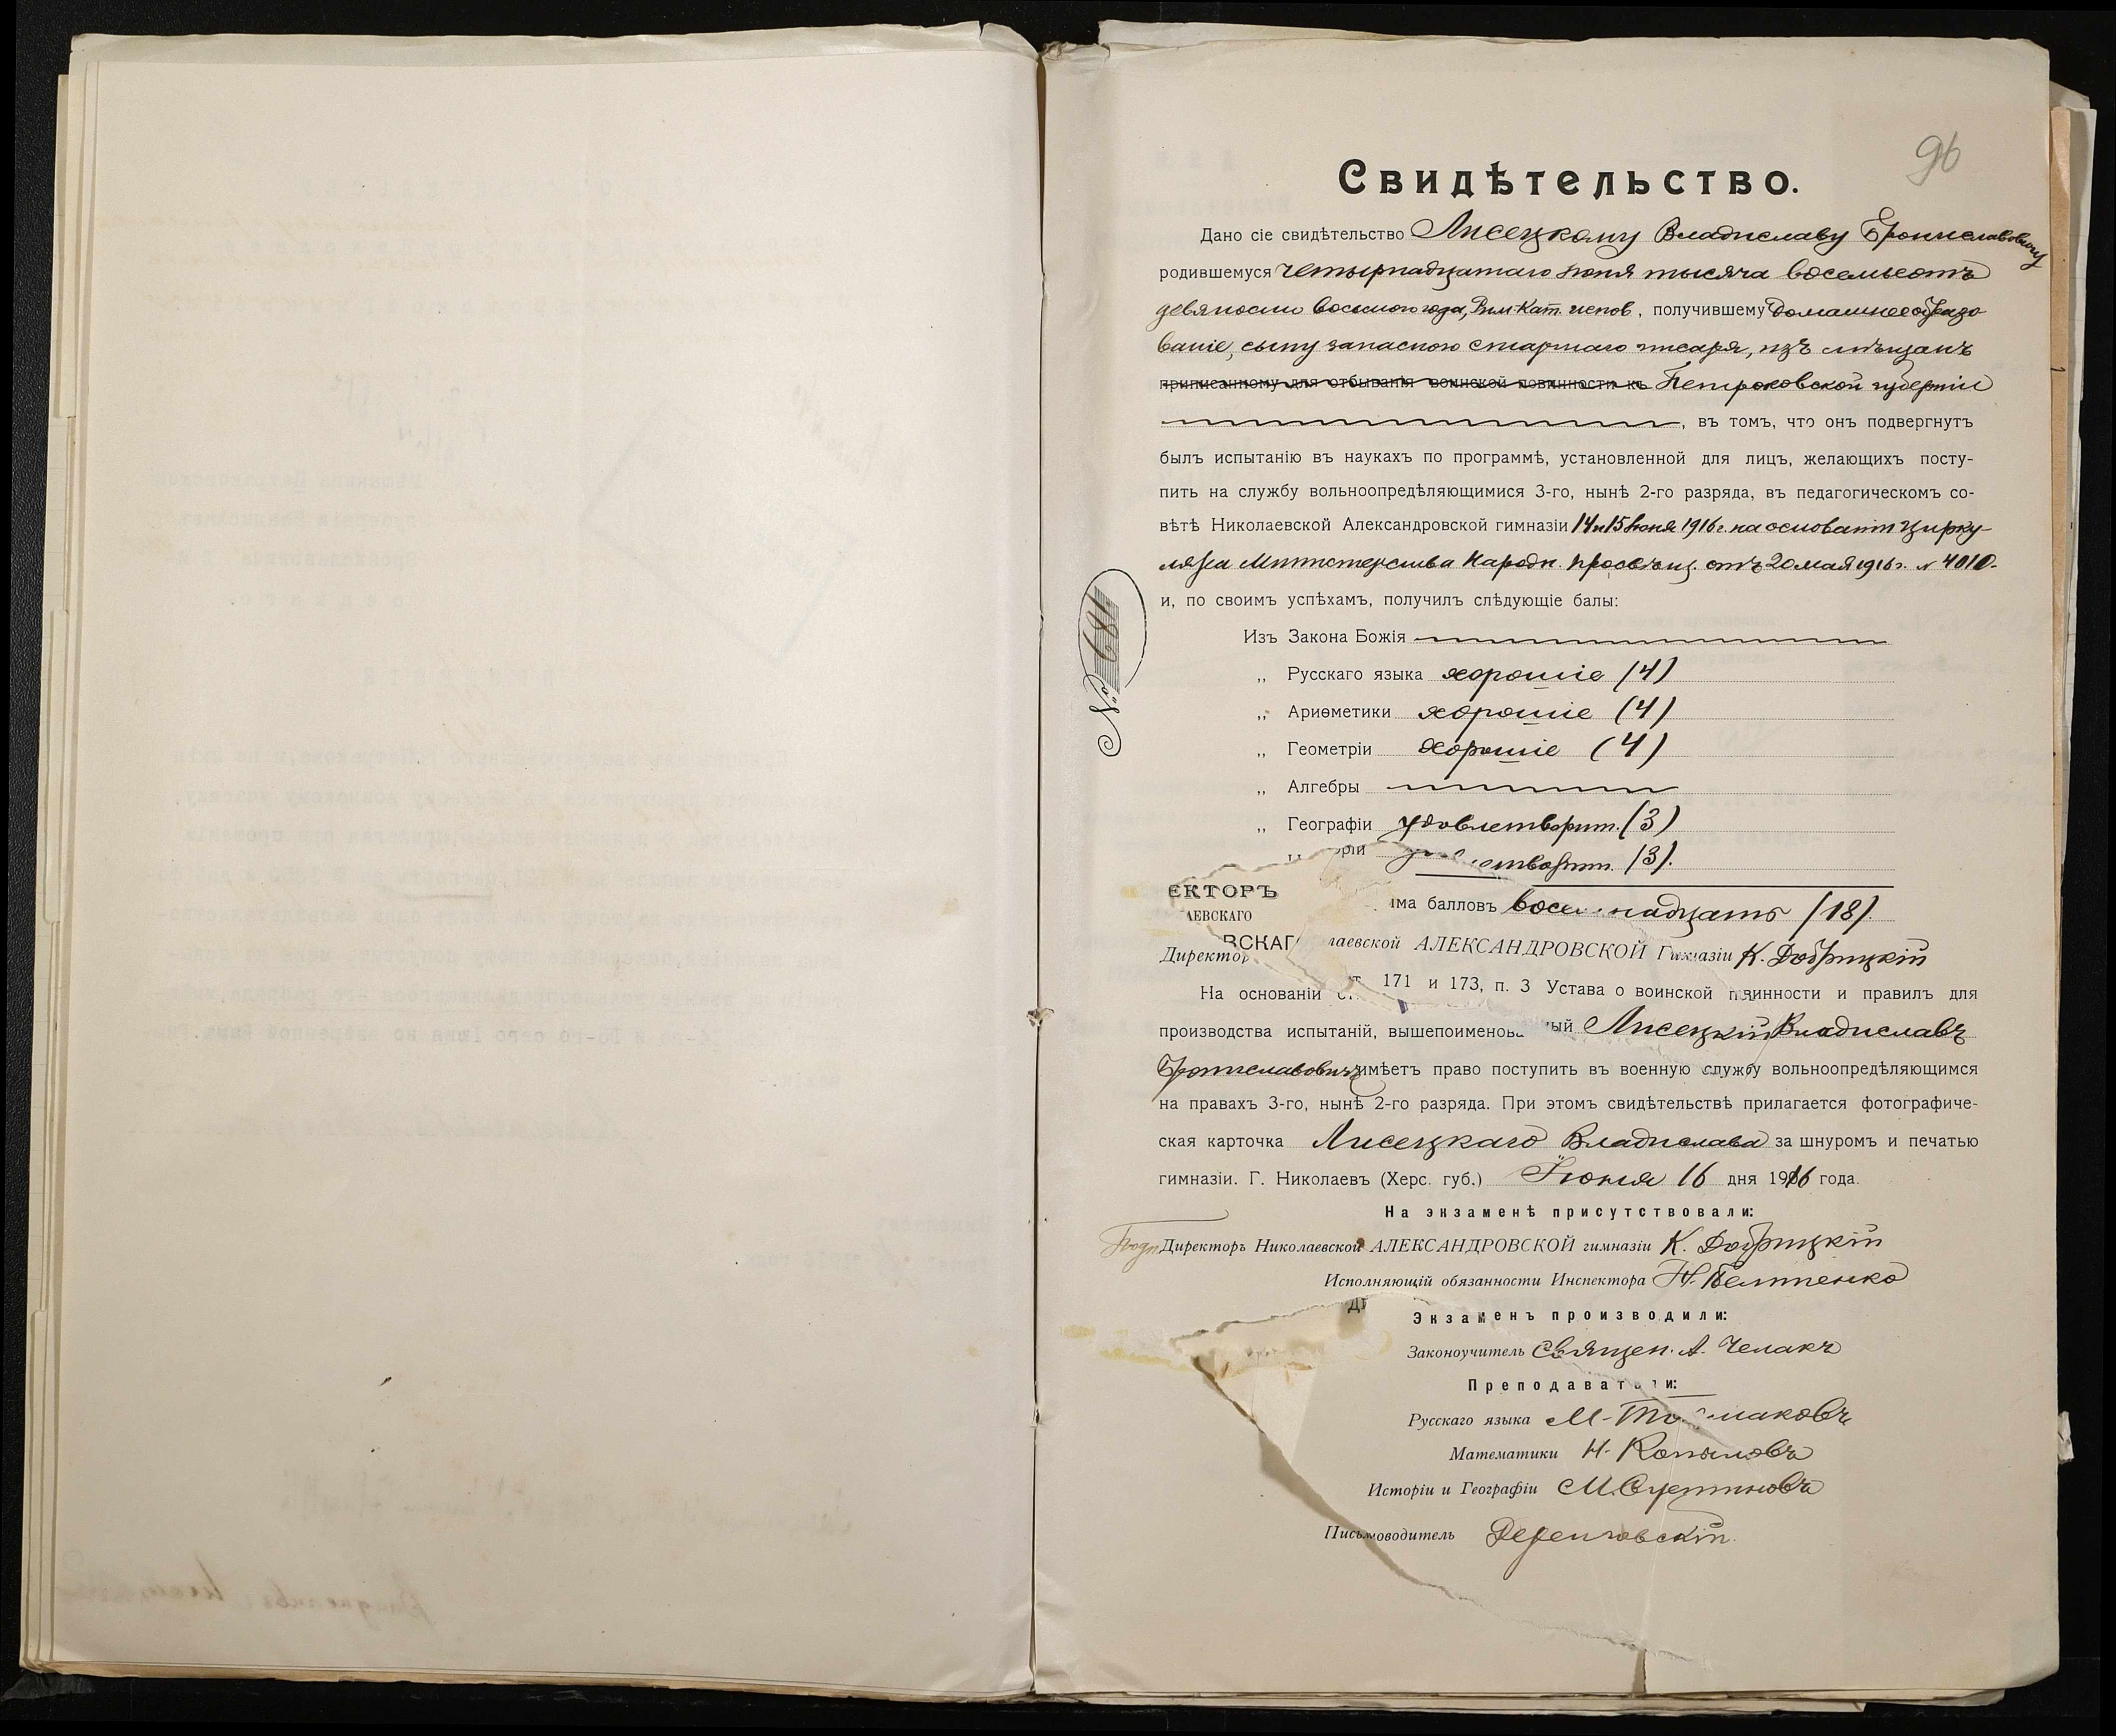 96
Свидѣтельство.
Дано сіе свидѣтельство Лисецкому Владиславу Брониславовичу
родившемуся четырнадцатаго іюня тысяча восемьсотъ
девяносто восьмого года, Рим-Кат. испов, получившему домашнее образо
ваніе, сыну запасного старшаго писаря, изъ мѣщанъ
приписанному для отбыванія воинской повинности къ Петроковской губерніи
, въ томъ, что онъ подвергнутъ
былъ испытанію въ наукахъ по программѣ, установленной для лицъ, желающихъ посту-
пить на службу вольноопредѣляющимися 3-го, нынѣ 2-го разряда, въ педагогическомъ со-
вѣтѣ Николаевской Александровской гимназіи 14 и 15 іюня 1916 г. на основаніи цирку-
ляра Министерства Народн. просвѣщ. отъ 20 мая 1916 г. № 4010.
и, по своимъ успѣхамъ, получилъ слѣдующіе балы:
№ 189
Изъ Закона Божія
„ Русскаго языка хорошіе (4)
„ Ариѳметики хорошіе (4)
„ Геометріи хорошіе (4)
„ Алгебры
„ Географіи удовлетворит. (3)
ріи творит. (3).
ЕКТОРЪ
ма балловъ восемнадцать (18).
ЛАЕВСКАГО
ВСКАГ
Директор лаевской АЛЕКСАНДРОВСКОЙ Гимназіи К. Добрицкій
На основаніи ст. 171 и 173, п. 3 Устава о воинской повинности и правилъ для
производства испытаній, вышепоименованный Лисецкій Владиславъ
Брониславовичъ имѣетъ право поступить въ военную службу вольноопредѣляющимся
на правахъ 3-го, нынѣ 2-го разряда. При этомъ свидѣтельствѣ прилагается фотографиче-
ская карточка Лисецкаго Владислава за шнуромъ и печатью
гимназіи. Г. Николаевъ (Херс. губ.) Іюня 16 дня 1916 года.
На экзаменѣ присутствовали:
Подп. Директоръ Николаевской АЛЕКСАНДРОВСКОЙ гимназіи К. Добрицкій
Исполняющій обязанности Инспектора
Экзаменъ производили:
Законоучитель Священ. А. Челакъ
Преподаватели:
Русскаго языка М.
Математики Н. Копыловъ
Исторіи и Географіи М.
Письмоводитель